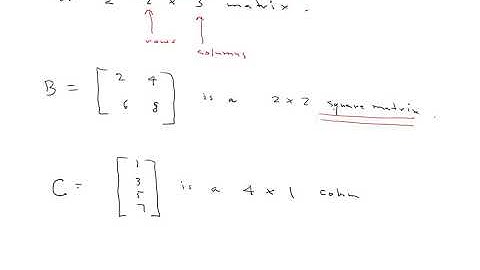 2 × 3 matrix.
rows columns
B = [2 4
6 8] is a 2×2 square matrix.
C = [1
3
5
7] is a 4×1 colum